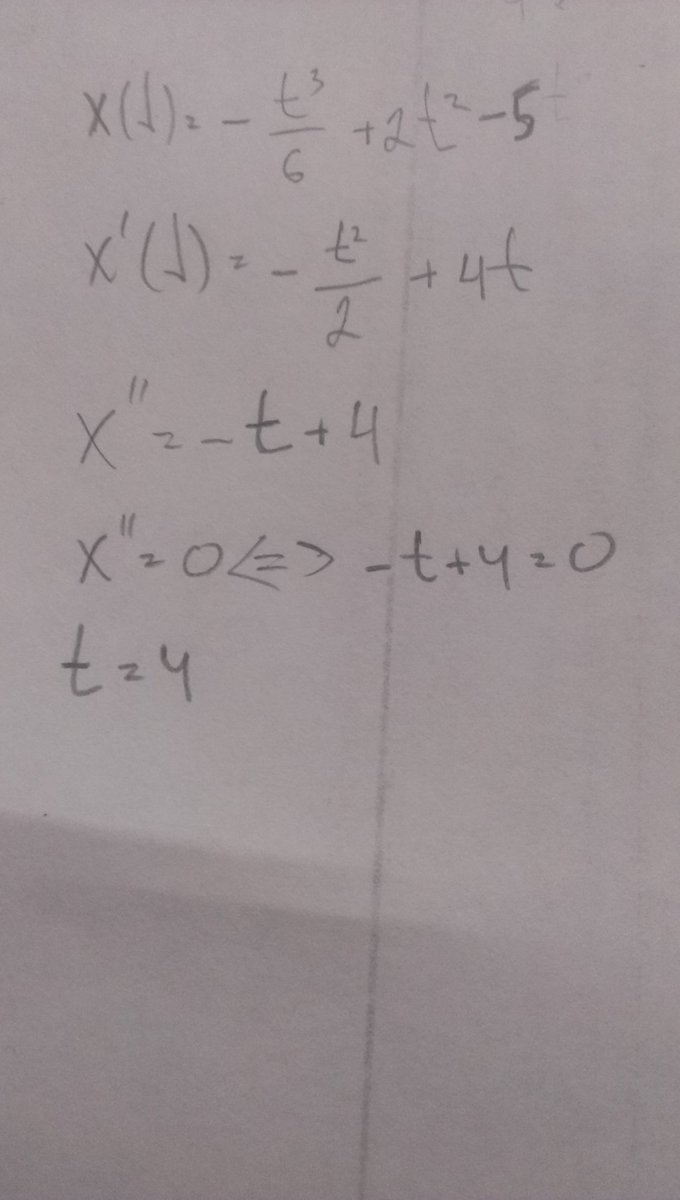 x(t) = - t³/6 + 2t² - 5
x'(t) = - t²/2 + 4t
x'' = - t + 4
x'' = 0 <=> - t + 4 = 0
t = 4